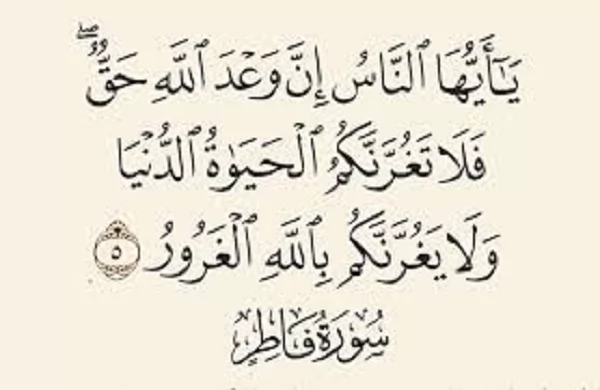 يَـٰٓأَيُّهَا ٱلنَّاسُ إِنَّ وَعْدَ ٱللَّهِ حَقٌّۖ
فَلَا تَغُرَّنَّكُمُ ٱلْحَيَوٰةُ ٱلدُّنْيَا
وَلَا يَغُرَّنَّكُم بِٱللَّهِ ٱلْغَرُورُ ٥
سُورَةُ فَاطِرٍ